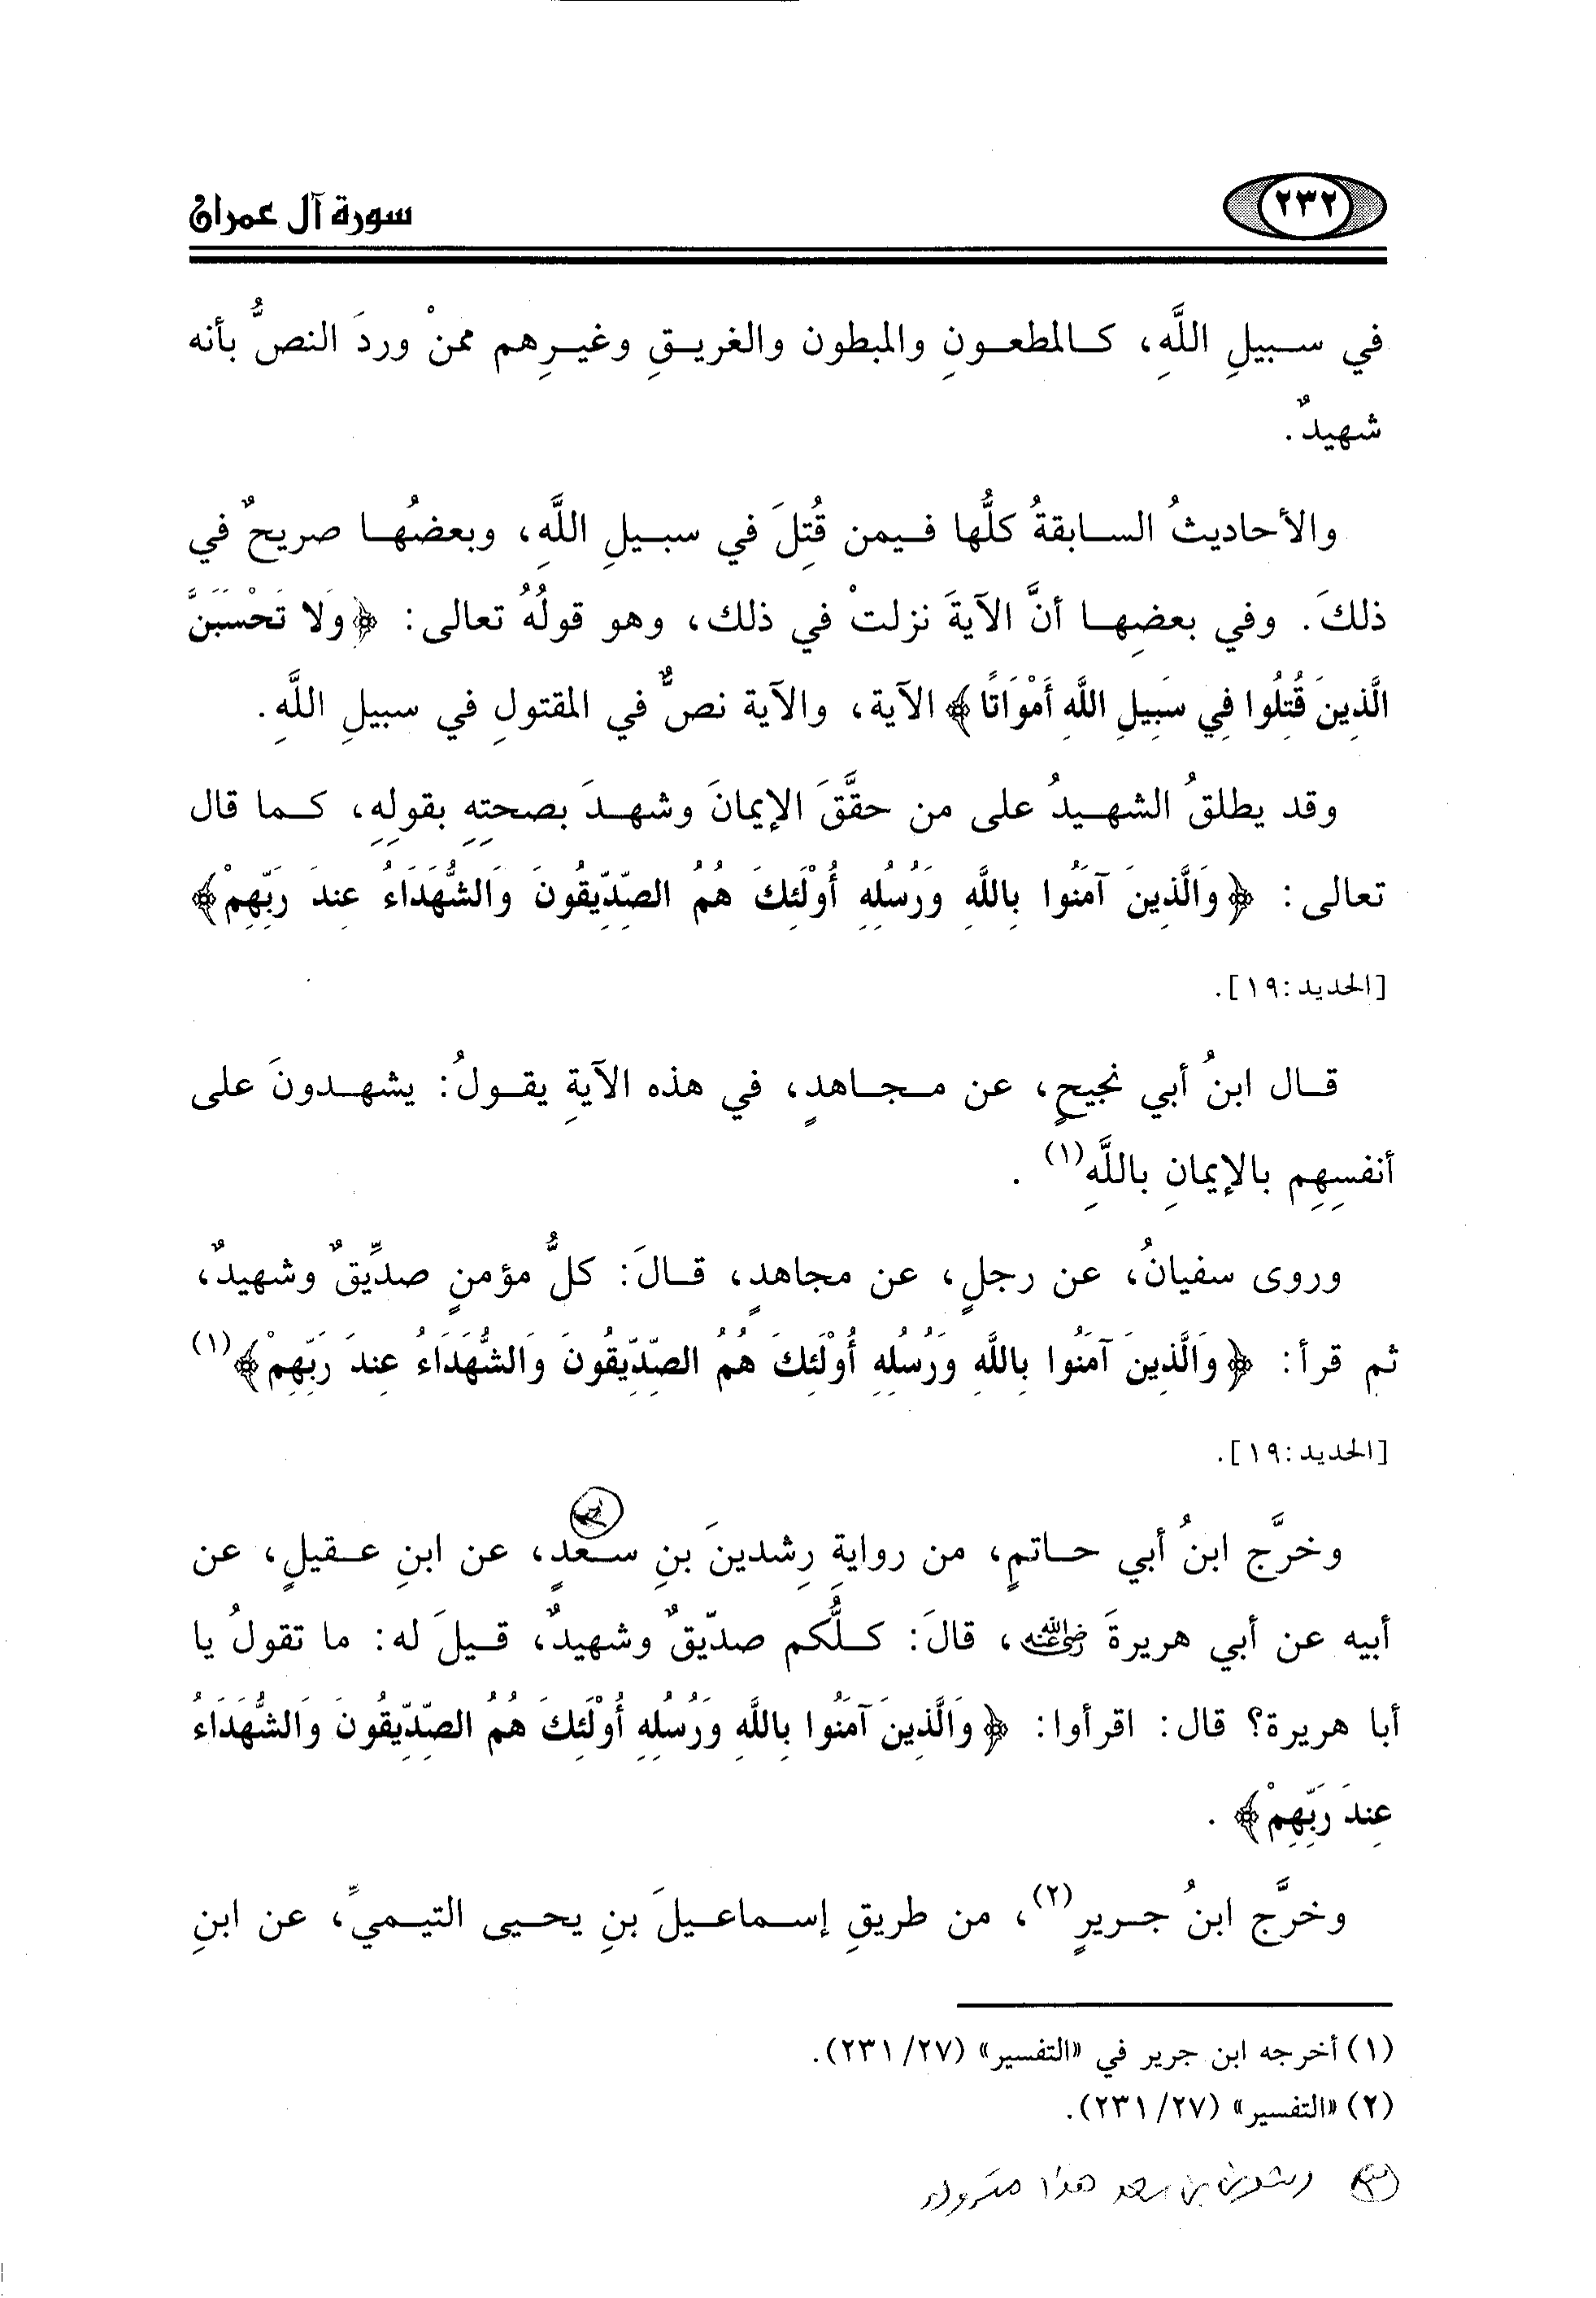 ٢٣٢
سورة آل عمران
في سبيلِ اللَّهِ، كالمطعونِ والمبطون والغريقِ وغيرِهم ممنْ وردَ النصُّ بأنه
شهيدٌ.
والأحاديثُ السابقةُ كلُّها فيمن قُتِلَ في سبيلِ اللَّهِ، وبعضُها صريحٌ في
ذلكَ. وفي بعضِها أنَّ الآيةَ نزلتْ في ذلك، وهو قولُهُ تعالى: ﴿وَلا تَحْسَبَنَّ
الَّذِينَ قُتِلُوا فِي سَبِيلِ اللَّهِ أَمْوَاتًا﴾ الآية، والآية نصٌّ في المقتولِ في سبيلِ اللَّهِ.
وقد يطلقُ الشهيدُ على من حقَّقَ الإيمانَ وشهدَ بصحتِهِ بقولِهِ، كما قال
تعالى: ﴿وَالَّذِينَ آمَنُوا بِاللَّهِ وَرُسُلِهِ أُوْلَئِكَ هُمُ الصِّدِّيقُونَ وَالشُّهَدَاءُ عِندَ رَبِّهِمْ﴾
[الحديد:١٩].
قال ابنُ أبي نجيحٍ، عن مجاهدٍ، في هذه الآيةِ يقولُ: يشهدونَ على
أنفسِهِم بالإيمانِ باللَّهِ(١) .
وروى سفيانُ، عن رجلٍ، عن مجاهدٍ، قالَ: كلُّ مؤمنٍ صدِّيقٌ وشهيدٌ،
ثم قرأ: ﴿وَالَّذِينَ آمَنُوا بِاللَّهِ وَرُسُلِهِ أُوْلَئِكَ هُمُ الصِّدِّيقُونَ وَالشُّهَدَاءُ عِندَ رَبِّهِمْ﴾(١)
[الحديد:١٩].
وخرَّج ابنُ أبي حاتمٍ، من روايةِ رِشدينَ بنِ سعدٍ، عن ابنِ عقيلٍ، عن
أبيه عن أبي هريرةَ رضي الله عنه، قالَ: كلُّكم صدّيقٌ وشهيدٌ، قيلَ له: ما تقولُ يا
أبا هريرة؟ قال: اقرأوا: ﴿وَالَّذِينَ آمَنُوا بِاللَّهِ وَرُسُلِهِ أُوْلَئِكَ هُمُ الصِّدِّيقُونَ وَالشُّهَدَاءُ
عِندَ رَبِّهِمْ﴾ .
وخرَّج ابنُ جريرٍ(٢)، من طريقِ إسماعيلَ بنِ يحيى التيميِّ، عن ابنِ
(١) أخرجه ابن جرير في «التفسير» (٢٣١/٢٧).
(٢) «التفسير» (٢٣١/٢٧).
رشدين بن سعد هذا متروك